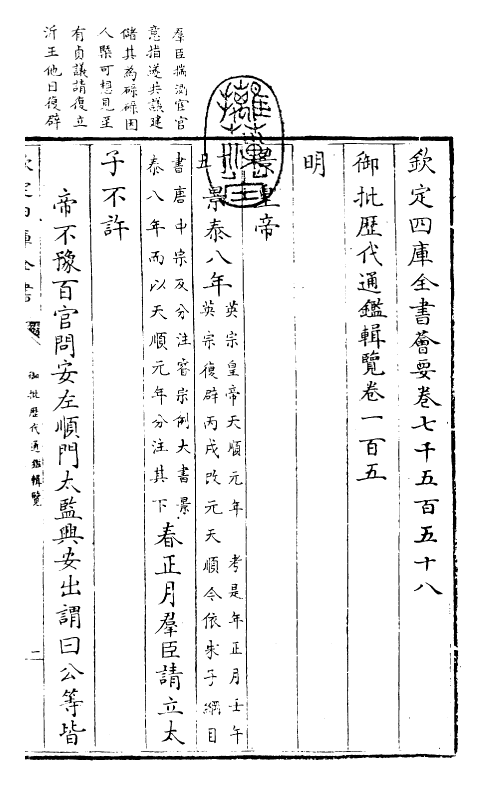 欽定四庫全書薈要卷七千五百五十八
御批歷代通鑑輯覽卷一百五
明
景皇帝
丑 景泰八年英宗皇帝天順元年 考是年正月壬午
英宗復辟丙戌改元天順今依朱子綱目
書唐中宗及分注睿宗例大書景
泰八年而以天順元年分注其下春正月羣臣請立太
子不許
帝不豫百官問安左順門太監興安出謂曰公等皆
羣臣揣測宦官
意指遂共議建
儲其為碌碌因
人槩可想見至
有貞議請復立
沂王他日復辟
欽定四庫全書
御批歷代通鑑輯覽
一